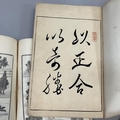 以正合
以奇勝